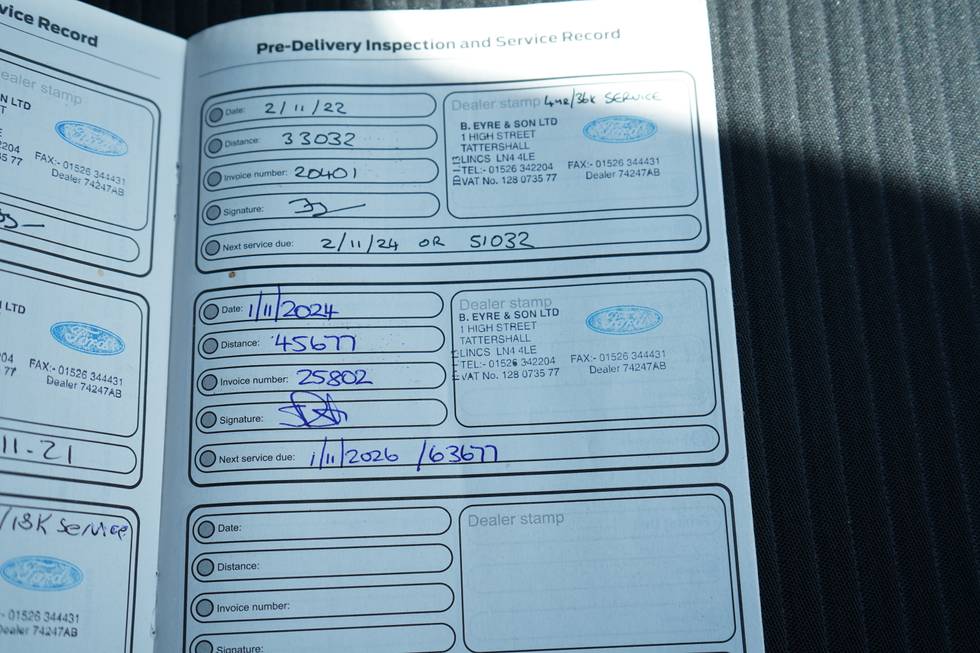 vice Record
ealer stamp
N LTD
Ford
2204
5 77
FAX:- 01526 344431
Dealer 74247AB
LTD
Ford
04
77
FAX:- 01526 344431
Dealer 74247AB
11.21
/18K Service
Ford
- 01526 344431
ealer 74247AB
Pre-Delivery Inspection and Service Record
Date: 2/11/22
Distance: 33032
Invoice number: 20401
Signature:
Next service due: 2/11/24 OR 51032
Dealer stamp 4YR/36K SERVICE
B. EYRE & SON LTD
1 HIGH STREET
TATTERSHALL
LINCS LN4 4LE
TEL:- 01526 342204
VAT No. 128 0735 77
Ford
FAX:- 01526 344431
Dealer 74247AB
Date: 1/11/2024
Distance: 45677
Invoice number: 25802
Signature:
Next service due: 1/11/2026 /63677
Dealer stamp
B. EYRE & SON LTD
1 HIGH STREET
TATTERSHALL
LINCS LN4 4LE
TEL:- 01526 342204
VAT No. 128 0735 77
Ford
FAX:- 01526 344431
Dealer 74247AB
Date:
Distance:
Invoice number:
Signature:
Dealer stamp